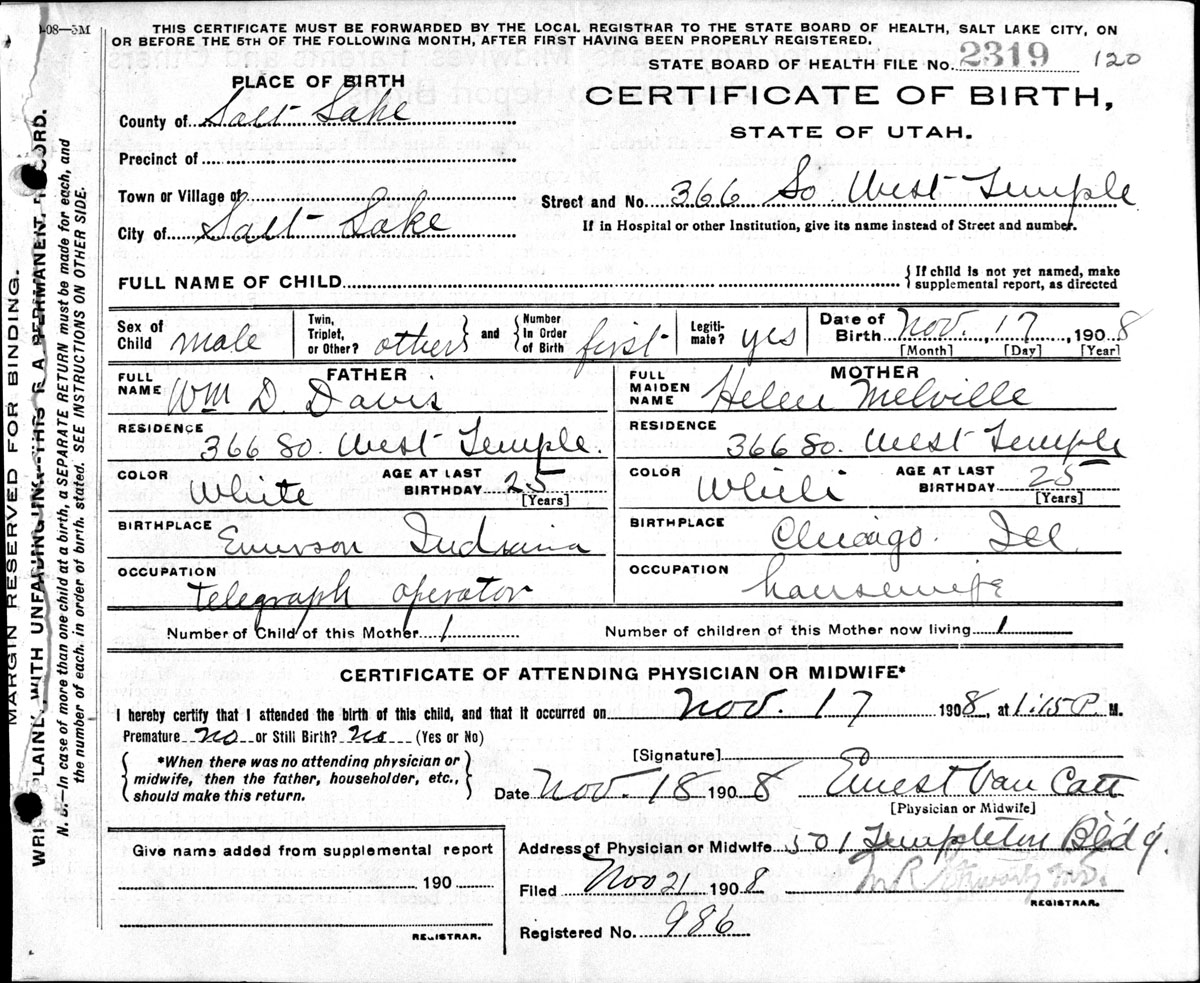 -08—5M
THIS CERTIFICATE MUST BE FORWARDED BY THE LOCAL REGISTRAR TO THE STATE BOARD OF HEALTH, SALT LAKE CITY, ON
OR BEFORE THE 5TH OF THE FOLLOWING MONTH, AFTER FIRST HAVING BEEN PROPERLY REGISTERED.
STATE BOARD OF HEALTH FILE No. 2319 120
PLACE OF BIRTH
CERTIFICATE OF BIRTH,
STATE OF UTAH.
County of Salt Lake
Precinct of
Town or Village of
City of Salt Lake
Street and No. 366 So. West Temple
If in Hospital or other Institution, give its name instead of Street and number.
FULL NAME OF CHILD
{ If child is not yet named, make
supplemental report, as directed
Sex of Child male
Twin, Triplet, or Other? other } and { Number In Order of Birth first
Legiti-mate? yes
Date of Birth Nov. 17, 1908
[Month] [Day] [Year]
FATHER
FULL NAME Wm D. Davis
RESIDENCE 366 So. West Temple.
COLOR White AGE AT LAST BIRTHDAY 25 [Years]
BIRTHPLACE Emerson Indiana
OCCUPATION telegraph operator
MOTHER
FULL MAIDEN NAME Helen Melville
RESIDENCE 366 So. West Temple
COLOR White AGE AT LAST BIRTHDAY 25 [Years]
BIRTHPLACE Chicago. Ill.
OCCUPATION housewife
Number of Child of this Mother 1 Number of children of this Mother now living 1
CERTIFICATE OF ATTENDING PHYSICIAN OR MIDWIFE*
I hereby certify that I attended the birth of this child, and that it occurred on Nov. 17 1908, at 1:15 P. M.
Premature no or Still Birth? no (Yes or No)
{ *When there was no attending physician or
midwife, then the father, householder, etc.,
should make this return. }
[Signature]
Date Nov. 18 1908 Ernest Van Cott
[Physician or Midwife]
Give name added from supplemental report
190
REGISTRAR.
Address of Physician or Midwife 501 Templeton Bldg.
Filed Nov 21 1908 M R
REGISTRAR.
Registered No. 986
MARGIN RESERVED FOR BINDING.
WRITE PLAINLY WITH UNFADING INK—THIS IS A PERMANENT RECORD.
N. B.—In case of more than one child at a birth, a SEPARATE RETURN must be made for each, and
the number of each, in order of birth, stated. SEE INSTRUCTIONS ON OTHER SIDE.